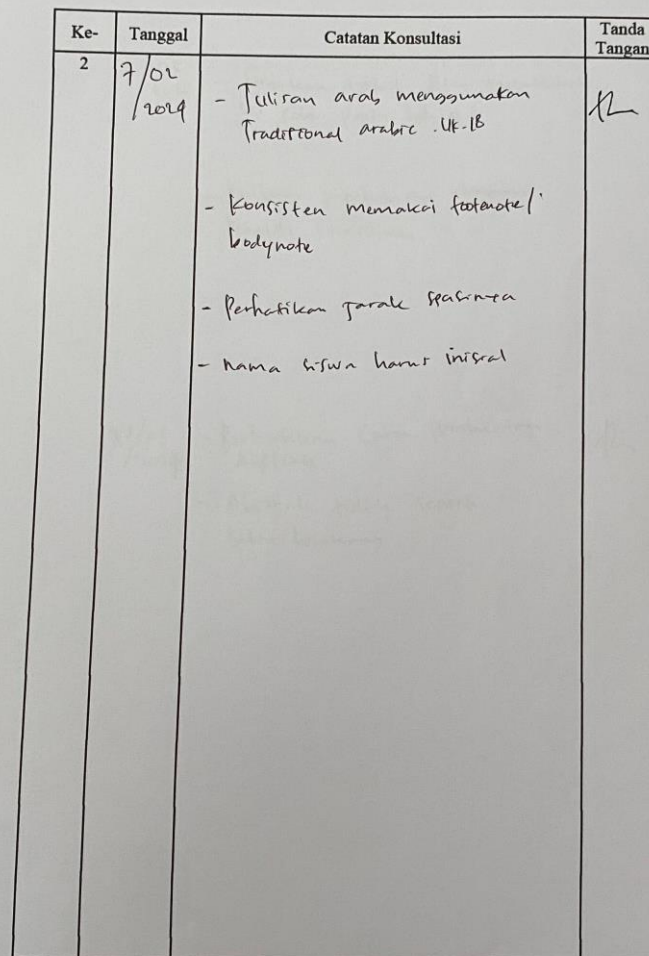 Ke- Tanggal Catatan Konsultasi Tanda Tangan
2 7/02/2024
- Tulisan arab menggunakan
Traditional arabic . Uk. 18
- Konsisten memakai footenote/
bodynote
- Perhatikan jarak spasinya
- nama siswa harus inisial